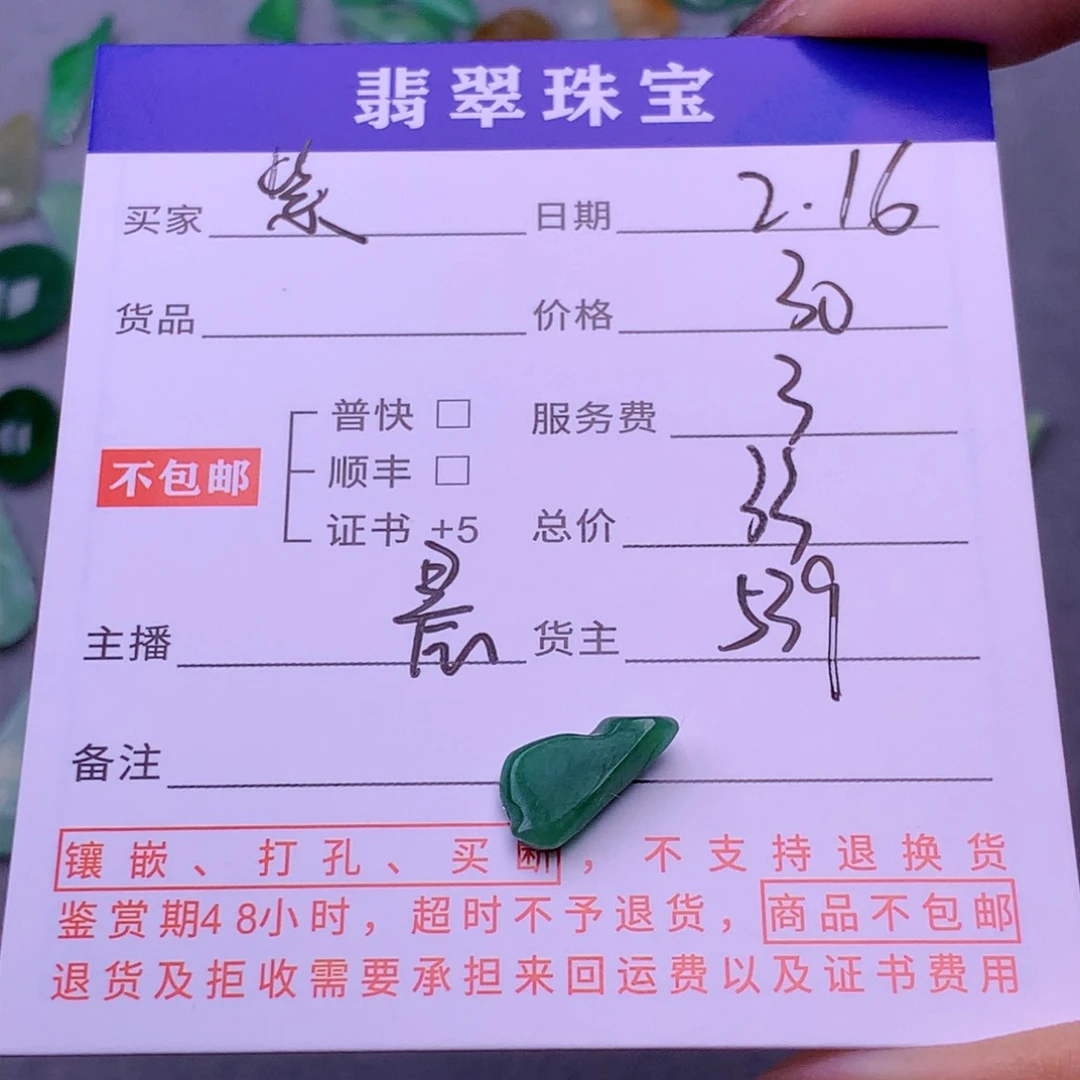 翡翠珠宝
买家 紫 日期 2.16
货品 价格 30
普快 □ 服务费 3
不包邮 顺丰 □
证书 +5 总价 33
主播 晨 货主 539
备注
镶嵌、打孔、买断，不支持退换货
鉴赏期48小时，超时不予退货，商品不包邮
退货及拒收需要承担来回运费以及证书费用